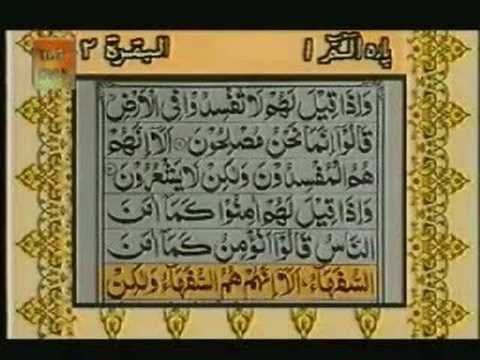 البقرة ٢
پارہ الٓمّٓ ١
وَاِذَا قِيْلَ لَهُمْ لَا تُفْسِدُوْا فِي الْاَرْضِ
قَالُوْٓا اِنَّمَا نَحْنُ مُصْلِحُوْنَ ۝ اَلَآ اِنَّهُمْ
هُمُ الْمُفْسِدُوْنَ وَلٰكِنْ لَّا يَشْعُرُوْنَ ۝
وَاِذَا قِيْلَ لَهُمْ اٰمِنُوْا كَمَآ اٰمَنَ
النَّاسُ قَالُوْٓا اَنُؤْمِنُ كَمَآ اٰمَنَ
السُّفَهَآءُ ؕ اَلَآ اِنَّهُمْ هُمُ السُّفَهَآءُ وَلٰكِنْ